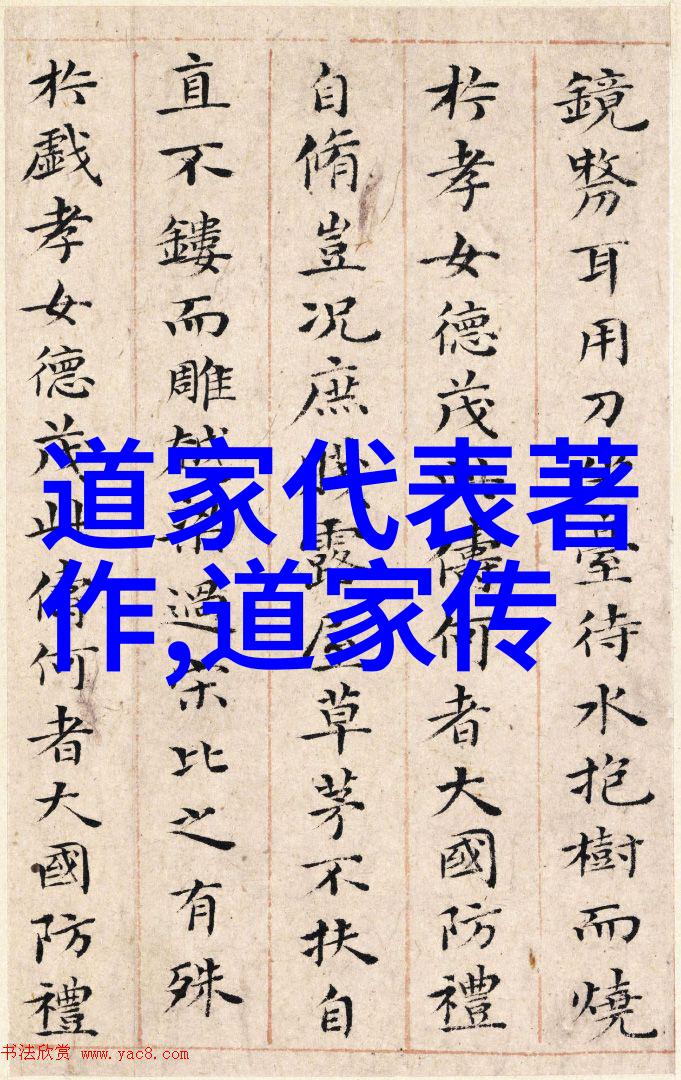 鏡剺耳用刀臺待水抱樹而燒
於孝女德茂此儔何者大國防禮
自脩豈况庶露屋草茅不扶自
直不鏤而雕過宋比之有殊
於戯孝女德茂此儔何者大國防禮
道家代表著
作,道家传
书法欣赏 www.yac8.com